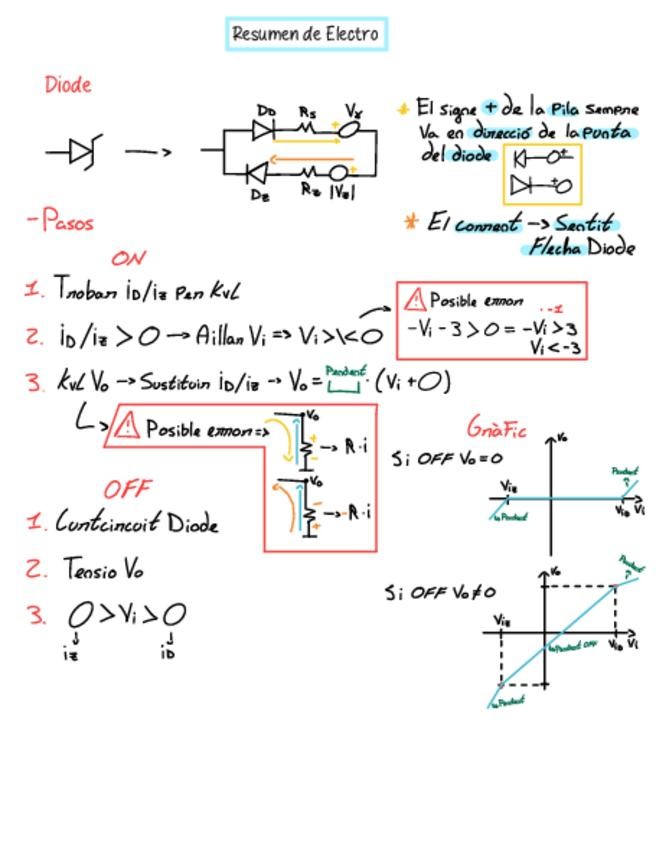 Resumen de Electro
Diode
D_D R_s V_γ
D_z R_z |V_z|
* El signe + de la Pila sempre
Va en direcció de la punta
del diode
* El corrent -> Sentit
Flecha Diode
-Pasos
ON
1. Trobar i_D/i_z per KVL
2. i_D/i_z > 0 → Aillar Vi => Vi >\< O
⚠ Posible error
· -1
-Vi - 3 > 0 = -Vi > 3
Vi < -3
3. KVL Vo → Sustituir i_D/i_z → Vo = Pendent · (Vi + O)
⚠ Posible error =>
Vo
+
-
→ R·i
Vo
-
+
→ -R·i
OFF
1. Curtcircuit Diode
2. Tensio Vo
3. O > Vi > O
iz iD
Gràfic
Si OFF Vo = 0
Vo
Pendent
Viz
Pendent
ViD Vi
Si OFF Vo ≠ 0
Vo
Pendent
Viz
ViD Vi
Pendent OFF
Pendent